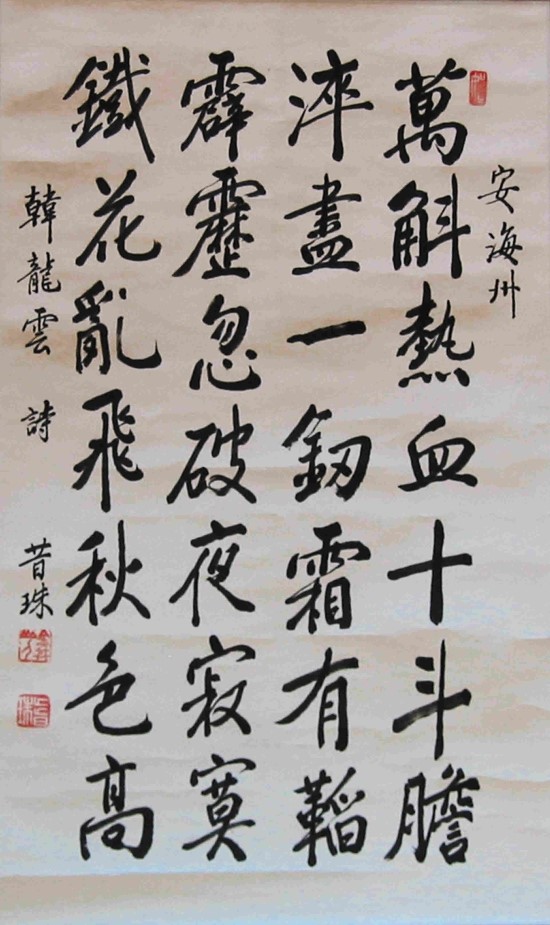 安海州
萬斛熱血十斗膽
淬盡一釼霜有韜
霹靂忽破夜寂寞
鐵花亂飛秋色高
韓龍雲 詩 昔珠